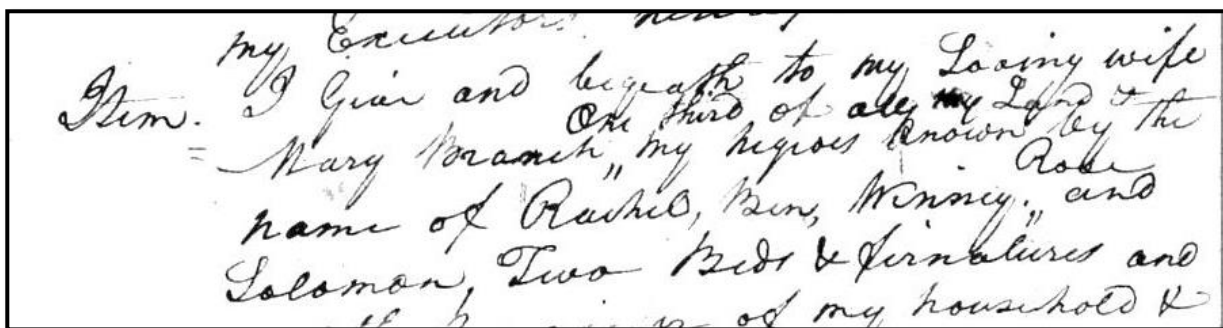 my Executors
Item. I Give and beqeath to my Loving wife
One third of all my Land &
Mary Branch " my negroes known by the
Rose
name of Rachel, Ben, Winney. " and
Solomon, Two Beds & firnatures and
of my household &